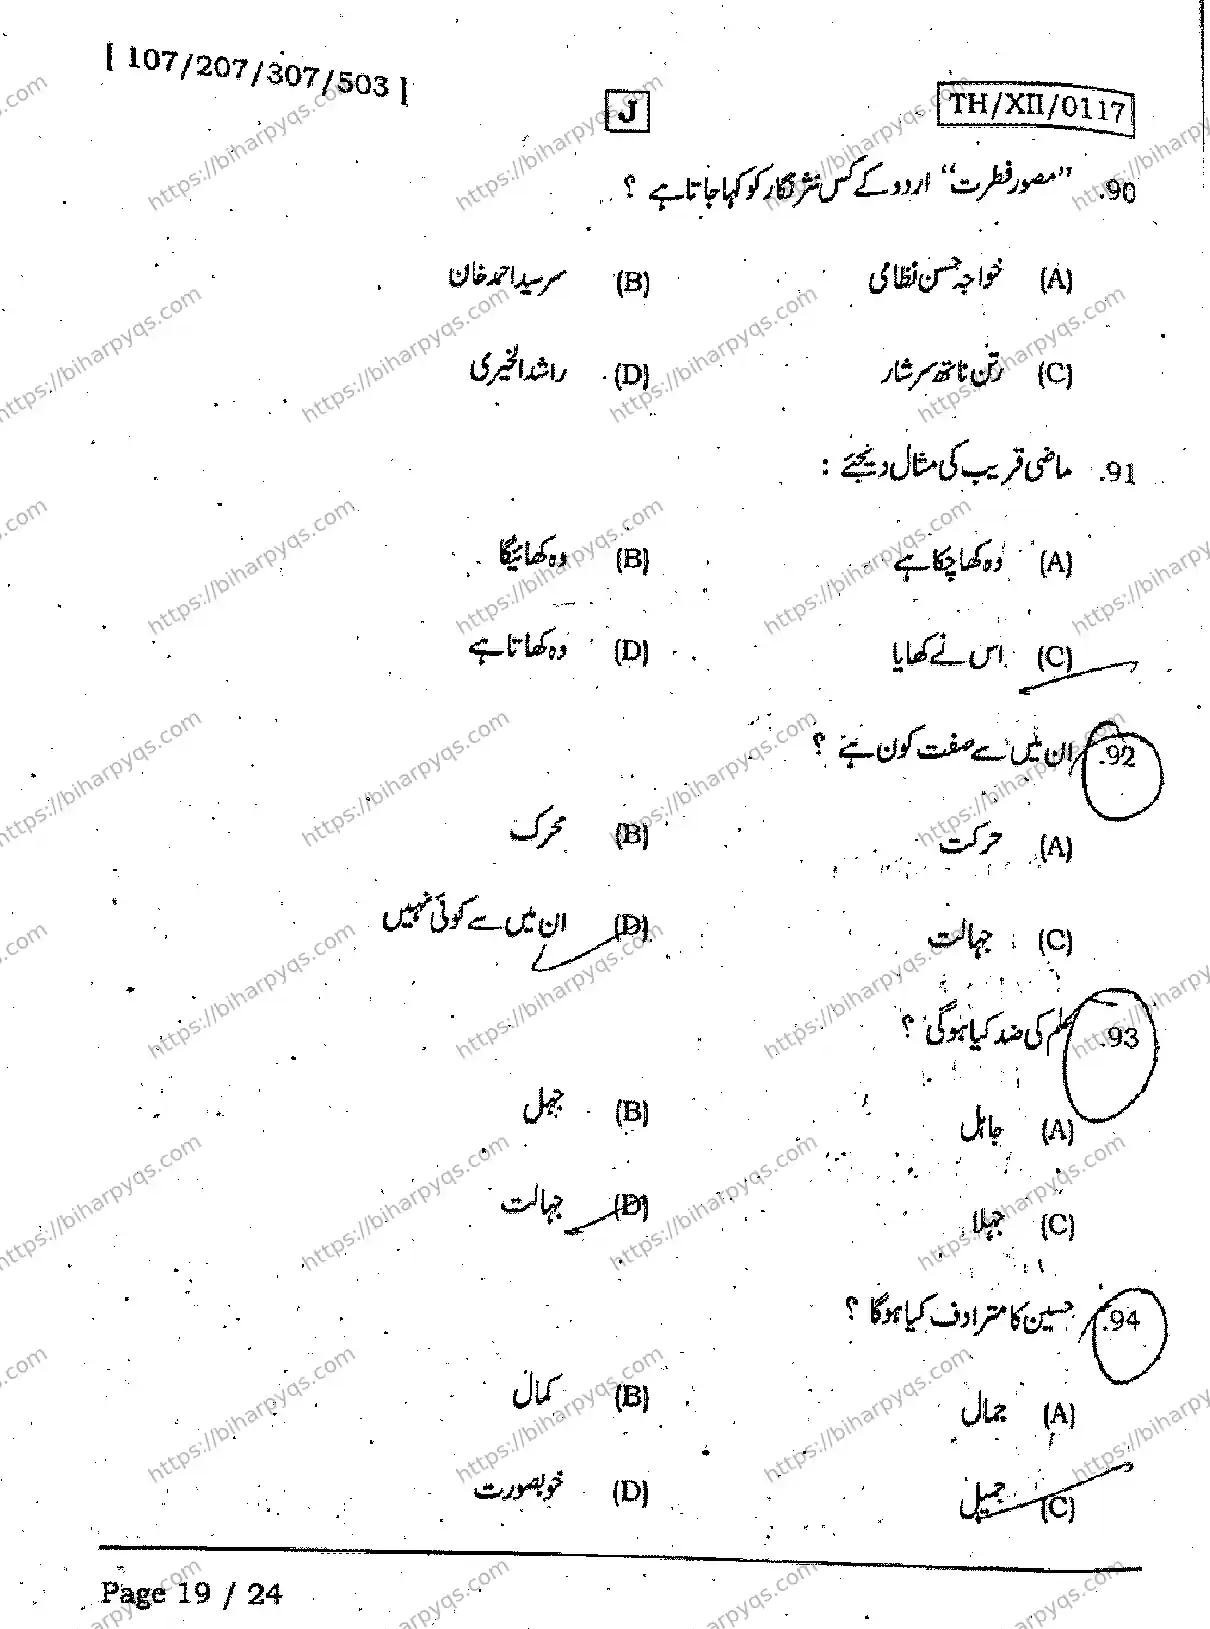 [ 107/207/307/503 ]
J
TH/XII/0117
90. ”مصور فطرت“ اردو کے کس نثر نگار کو کہا جاتا ہے ؟
(A) خواجہ حسن نظامی (B) سرسید احمد خان
(C) رتن ناتھ سرشار (D) راشد الخیری
91. ماضی قریب کی مثال دیجئے :
(A) وہ کھا چکا ہے (B) وہ کھائیگا
(C) اس نے کھایا (D) وہ کھاتا ہے
92. ان میں سے صفت کون ہے ؟
(A) حرکت (B) محرک
(C) جہالت (D) ان میں سے کوئی نہیں
93. علم کی ضد کیا ہوگی ؟
(A) جاہل (B) جہل
(C) جہلا (D) جہالت
94. حسین کا مترادف کیا ہوگا ؟
(A) جمال (B) کمال
(C) جمیل (D) خوبصورت
Page 19 / 24
https://biharpyqs.com